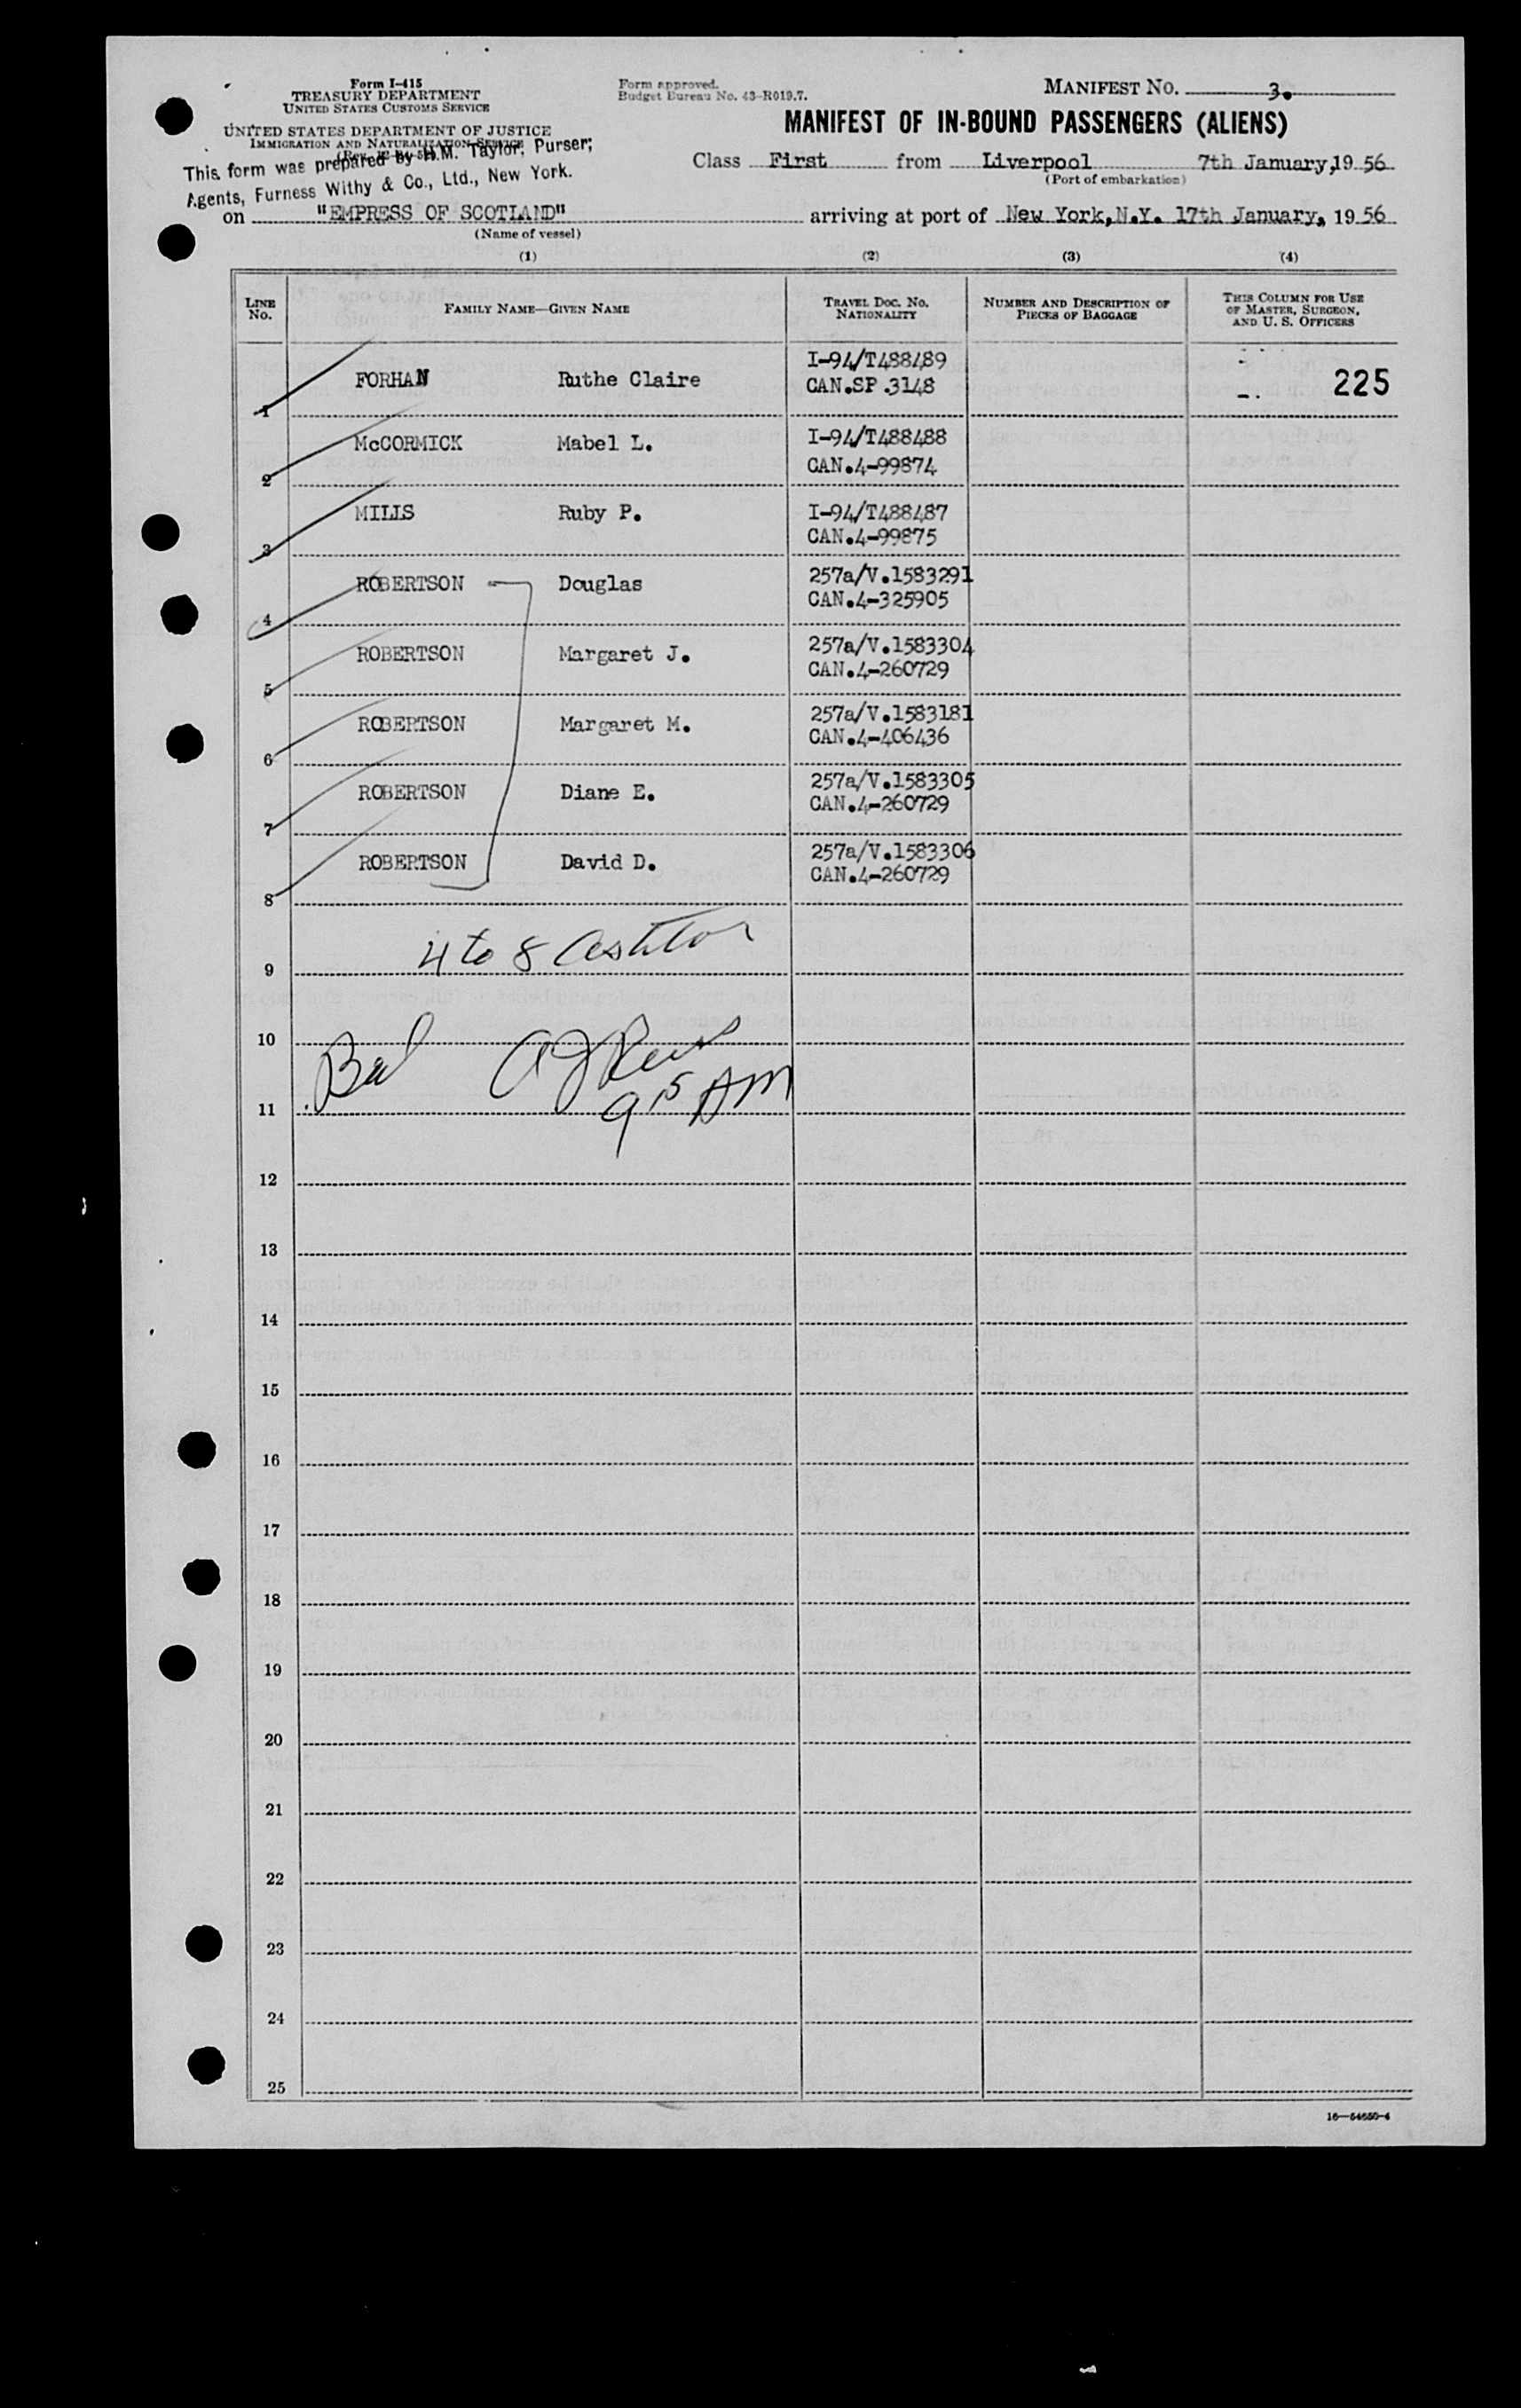 Form I-415
TREASURY DEPARTMENT
UNITED STATES CUSTOMS SERVICE
UNITED STATES DEPARTMENT OF JUSTICE
IMMIGRATION AND NATURALIZATION SERVICE
This form was prepared by H.M. Taylor, Purser;
Agents, Furness Withy & Co., Ltd., New York.
Form approved.
Budget Bureau No. 43-R019.7.
MANIFEST NO. 3.
MANIFEST OF IN-BOUND PASSENGERS (ALIENS)
Class First from Liverpool 7th January, 19 56
(Port of embarkation)
on "EMPRESS OF SCOTLAND" arriving at port of New York, N.Y. 17th January, 19 56
(Name of vessel)
(1) (2) (3) (4)
LINE NO. FAMILY NAME—GIVEN NAME TRAVEL DOC. NO. NATIONALITY NUMBER AND DESCRIPTION OF PIECES OF BAGGAGE THIS COLUMN FOR USE OF MASTER, SURGEON, AND U. S. OFFICERS
I-94/T488489
1 FORHAN Ruthe Claire CAN.SP.3148 225
2 McCORMICK Mabel L. I-94/T488488
CAN.4-99874
3 MILLS Ruby P. I-94/T488487
CAN.4-99875
4 ROBERTSON Douglas 257a/V.1583291
CAN.4-325905
5 ROBERTSON Margaret J. 257a/V.1583304
CAN.4-260729
6 ROBERTSON Margaret M. 257a/V.1583181
CAN.4-406436
7 ROBERTSON Diane E. 257a/V.1583305
CAN.4-260729
8 ROBERTSON David D. 257a/V.1583306
CAN.4-260729
4 to 8
9
10
Bal
9 15 AM
11
12
13
14
15
16
17
18
19
20
21
22
23
24
25
16—54650-4